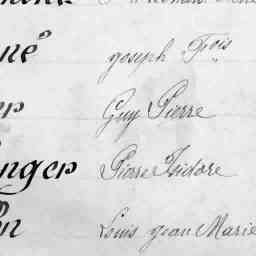 né joseph Fois
er Guy Pierre
nger Pierre Isidore
n Louis jean Marie